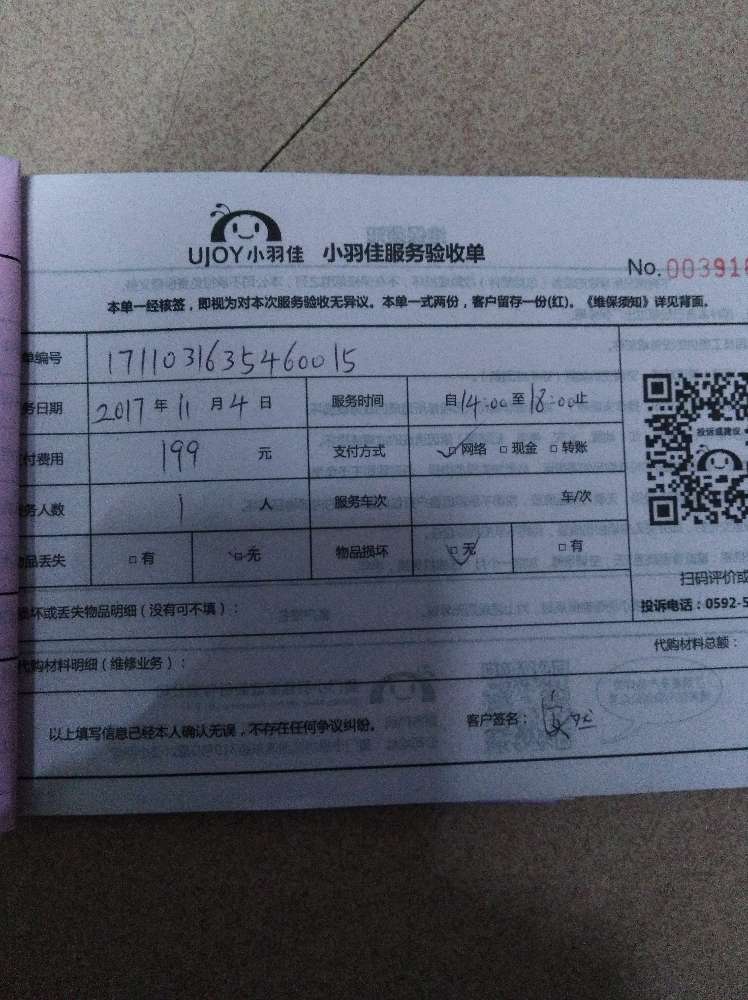 UJOY小羽佳 小羽佳服务验收单
No. 003916
本单一经核签，即视为对本次服务验收无异议。本单一式两份，客户留存一份(红)。《维保须知》详见背面。
单编号 1711031635460015
务日期 2017 年 11 月 4 日 服务时间 自14:00至18:00止
付费用 199 元 支付方式 网络 现金 转账
投诉或建议
务人数 1 人 服务车次 车/次
物品丢失 有 无 物品损坏 无 有
扫码评价或
损坏或丢失物品明细（没有可不填）：
投诉电话：0592-5
代购材料明细（维修业务）：
代购材料总额：
以上填写信息已经本人确认无误，不存在任何争议纠纷。 客户签名：